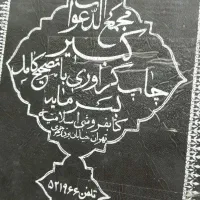 مجمع الدعوات
کبیر
چاپ گراوری با تصحیح کامل
کتابفروشی اسلامیه
تهران خیابان
تلفن ۵۲۱۹۶۶